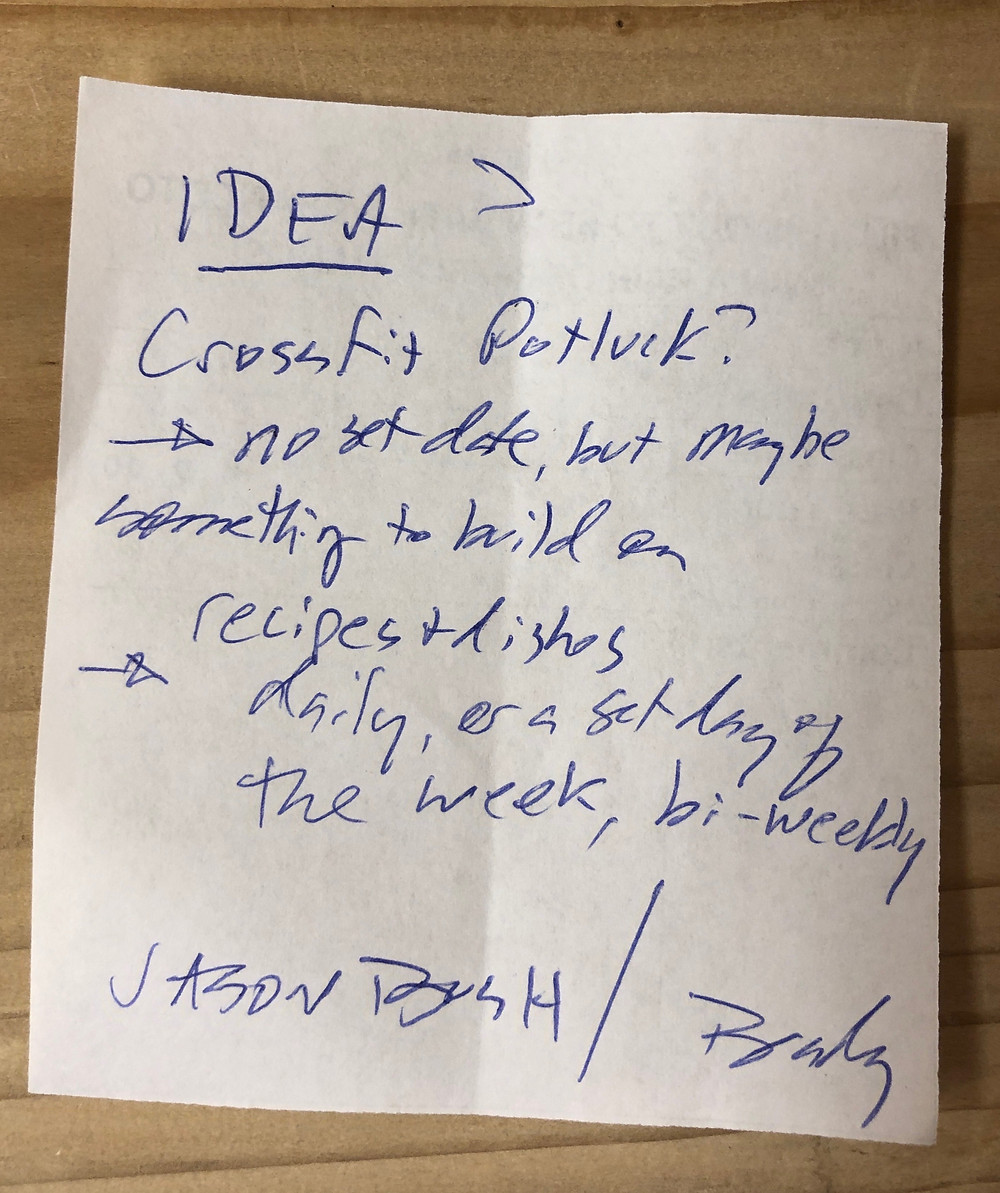 IDEA
CrossFit Potluck?
→ no set date, but maybe
something to build on
recipes + dishes
→ daily, or a set day of
the week, bi-weekly
JASON BUSH / Brady